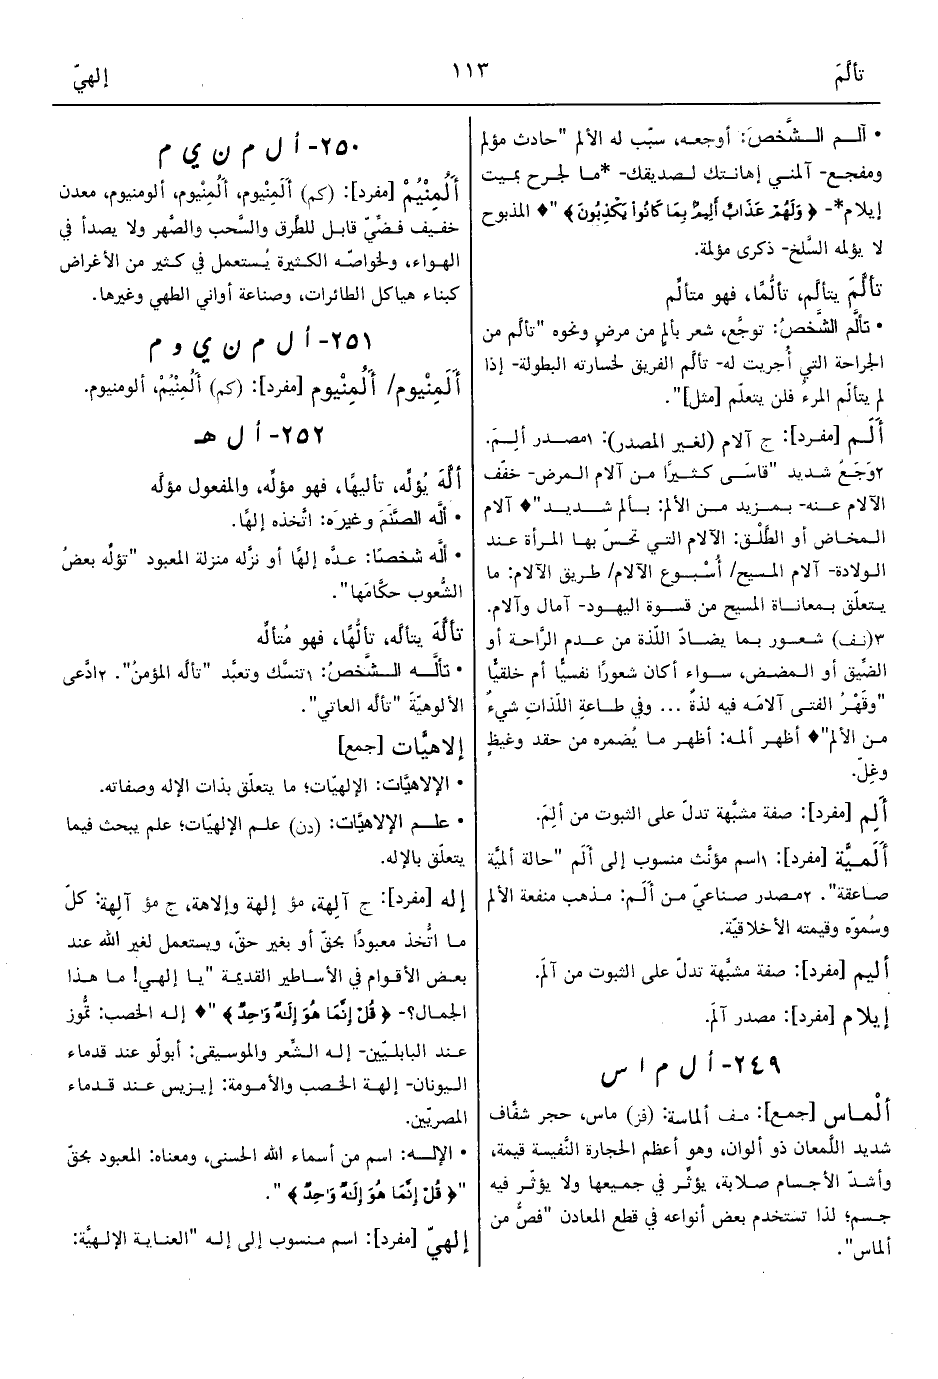 تألَّمَ
١١٣
إلهيّ
• آلـم الـشَّخصَ: أوجعه، سبّب له الألم "حادث مؤلم
ومفجع- آلمني إهانتك لصديقك- *ما لجرح بميت
إيلام*- ﴿ وَلَهُمْ عَذَابٌ أَلِيمٌ بِمَا كَانُوا يَكْذِبُونَ ﴾ "♦ المذبوح
لا يؤلمه السَّلخ- ذكرى مؤلمة.
تألَّمَ يتألم، تألُّمًا، فهو متألِّم
• تألَّم الشَّخصُ: توجَّع، شعر بألمٍ من مرضٍ ونحوه "تألّم من
الجراحة التي أُجريت له- تألّم الفريق لخسارته البطولة- إذا
لم يتألّم المرءُ فلن يتعلّم [مثل]".
أَلَـم [مفـرد]: ج آلام (لغير المصدر): ١مصـدر ألِـمَ.
٢وَجَعٌ شديد "قاسَـى كثيـرًا مـن آلام المـرض- خفّف
الآلام عـنه- بـمزيد مـن الألم: بـألم شـديد"♦ آلام
المخاض أو الطَّلْق: الآلام التي تحسّ بها المرأة عند
الولادة- آلام المسيح/ أُسْبوع الآلام/ طريق الآلام: ما
يتعلّق بمعاناة المسيح من قسوة اليهود- آمال وآلام.
٣(نف) شعور بما يضادّ اللّذة من عدم الرَّاحة أو
الضِّيق أو المضض، سواء أكان شعورًا نفسيًّا أم خلقيًّا
"وقَهْرُ الفتى آلامَه فيه لذةٌ ... وفي طاعةِ اللّذاتِ شيءٌ
من الألم"♦ أظهر ألمه: أظهر ما يُضمره من حقد وغيظٍ
وغِلّ.
أَلِم [مفرد]: صفة مشبَّهة تدلّ على الثبوت من ألِمَ.
أَلَميَّة [مفرد]: ١اسم مؤنَّث منسوب إلى ألَم "حالة ألميَّة
صاعقة". ٢مصدر صناعيّ من ألَم: مذهب منفعة الألم
وسُموّه وقيمته الأخلاقيّة.
أليم [مفرد]: صفة مشبَّهة تدلّ على الثبوت من ألمَ.
إيلام [مفرد]: مصدر آلمَ.
٢٤٩- أ ل م ا س
ألْماس [جمع]: مف ألماسة: (فز) ماس، حجر شفَّاف
شديد اللَّمعان ذو ألوان، وهو أعظم الحجارة النَّفيسة قيمة،
وأشدّ الأجسام صلابة، يؤثّر في جميعها ولا يؤثّر فيه
جسم؛ لذا تستخدم بعض أنواعه في قطع المعادن "فصُّ من
ألماس".
٢٥٠- أ ل م ن ي م
أَلُمِنْيُمْ [مفرد]: (كم) ألَمِنْيوم، ألُمِنْيوم، ألومنيوم، معدن
خفيف فضّيّ قابل للطَّرق والسَّحب والصَّهر ولا يصدأ في
الهواء، ولخواصّه الكثيرة يُستعمل في كثير من الأغراض
كبناء هياكل الطائرات، وصناعة أواني الطهي وغيرها.
٢٥١- أ ل م ن ي و م
أَلَمِنْيوم/ أَلُمِنْيوم [مفرد]: (كم) ألُمِنْيُمْ، ألومنيوم.
٢٥٢- أ ل هـ
ألَّهَ يُؤلِّه، تأليهًا، فهو مؤلِّه، والمفعول مؤلَّه
• ألَّه الصَّنَمَ وغيرَه: اتَّخذه إلهًا.
• ألَّه شخصًا: عدَّه إلهًا أو نزَّله منزلة المعبود "تؤلّه بعضُ
الشُّعوب حكَّامَها".
تألَّهَ يتألّه، تألُّهًا، فهو مُتألِّه
• تألَّـه الـشَّخصُ: ١تنسَّك وتعبَّد "تألَّه المؤمنُ". ٢ادَّعى
الألوهيّةَ "تألّه العاتي".
إلاهيَّات [جمع]
• الإلاهيَّات: الإلهيّات؛ ما يتعلّق بذات الإله وصفاته.
• علـم الإلاهيَّات: (دن) علـم الإلهيّات؛ علم يبحث فيما
يتعلّق بالإله.
إله [مفرد]: ج آلهة، مؤ إلهة وإلاهة، ج مؤ آلهة: كلّ
ما اتُّخذ معبودًا بحقّ أو بغير حقّ، ويستعمل لغير الله عند
بعض الأقوام في الأساطير القديمة "يا إلهي! ما هذا
الجمال؟- ﴿ قُلْ إِنَّمَا هُوَ إِلَهٌ وَاحِدٌ ﴾ "♦ إله الخصب: تمُّوز
عند البابليّين- إله الشِّعر والموسيقى: أبولّو عند قدماء
اليونان- إلهة الخصب والأمومة: إيزيس عند قدماء
المصريّين.
• الإلـه: اسم من أسماء الله الحسنى، ومعناه: المعبود بحقّ
"﴿ قُلْ إِنَّمَا هُوَ إِلَهٌ وَاحِدٌ ﴾ ".
إلهيّ [مفرد]: اسم منسوب إلى إله "العناية الإلهيَّة: